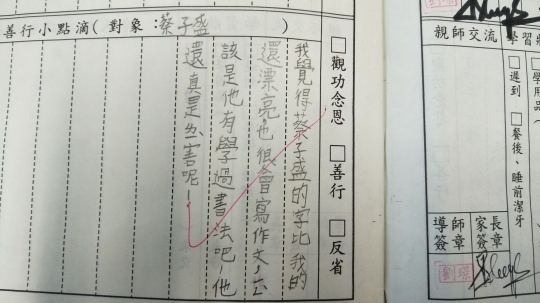 善行小點滴(對象:蔡子盛)
□觀功念恩 □善行 □反省
我覺得蔡子盛的字比我的
還漂亮,也很會寫作文,应
該是他有學過書法吧!他
還真是厉害呢!
親師交流
學習
□遲到 □餐後、睡前潔牙
學用品
導師簽章
家長簽章